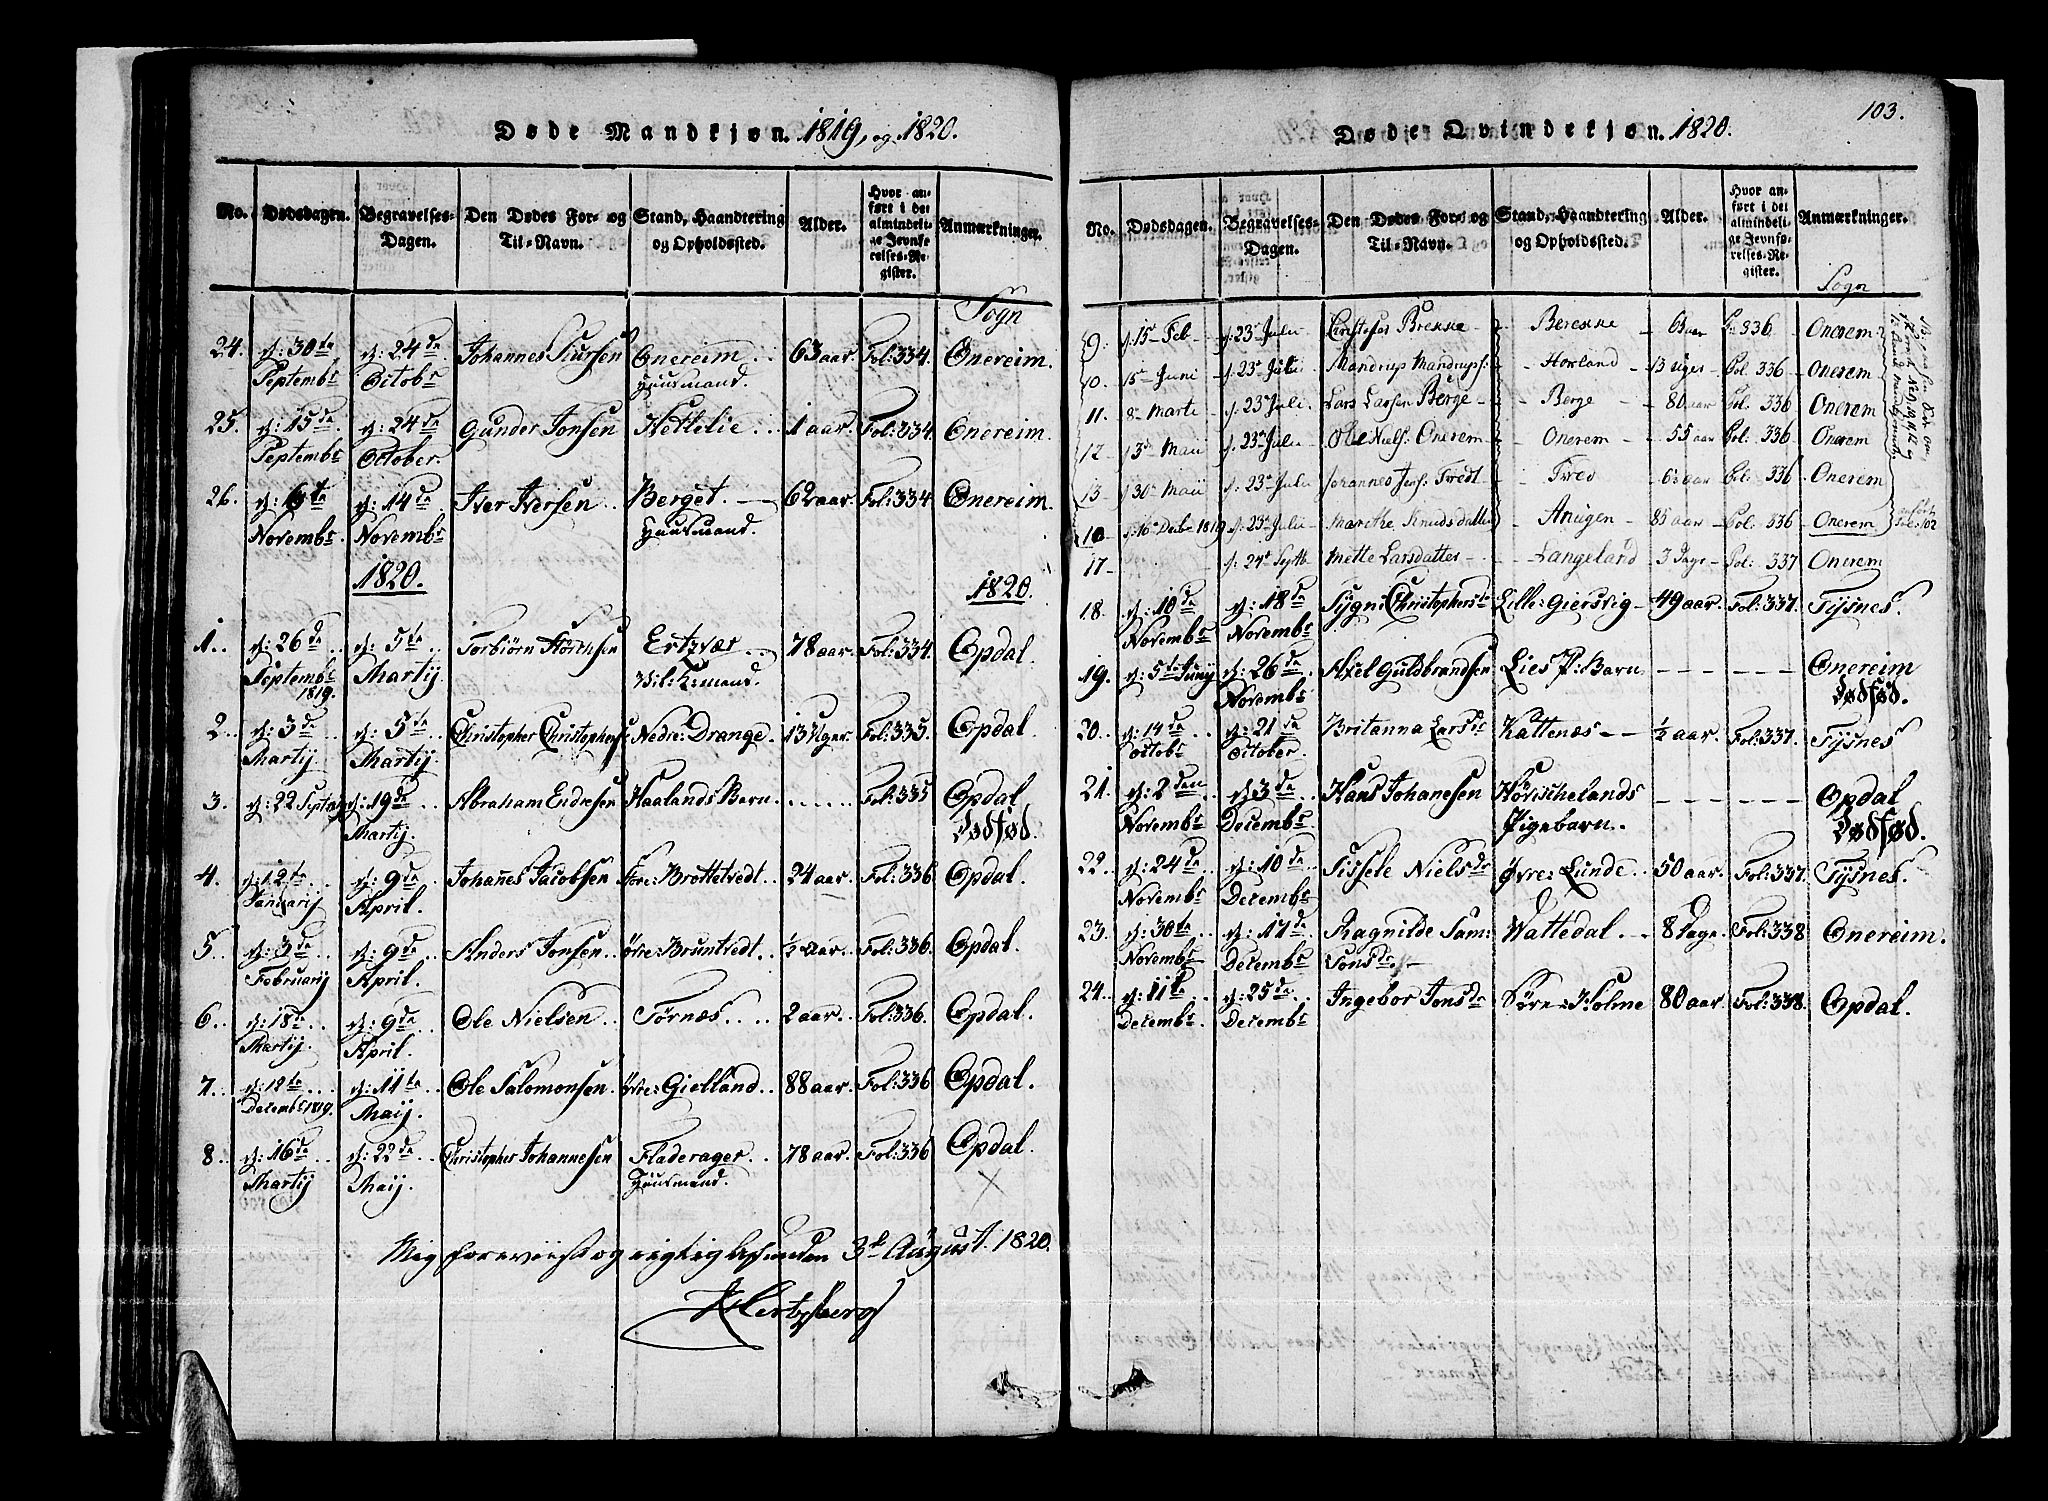 Døde Mandkjøn. 1819, og 1820.
No. Dødsdagen. Begravelses-Dagen. Den Dødes For- og Til-Navn. Stand, Haandtering og Opholdssted. Alder. Hvor anført i det almindelige Jevnførelses-Register. Anmærkninger.
Sogn
24. d: 30da Septembr d: 24da Octobr Johannes Siursen Onereim Huusmand. 63 aar. Fol: 334. Onereim.
25. d: 15da Septembr d: 24da October. Gunder Jonsen Nettelie 1 aar. Fol: 334. Onereim.
26. d: 6ta Novembr d: 14da Novembr Iver Iversen Berget Huusmand. 62 aar. Fol: 334 Onereim.
1820. 1820.
1. d: 26da Septembr 1819. d: 5ta Martij Torbiörn Ertzvær 78 aar. Fol: 334. Opdal.
2. d: 3da Martij d: 5ta Martij. Christopher Christophers: Nedre: Drange 13 Uger. Fol: 335. Opdal.
3. d: 22 d: 19da Martij. Abraham Endresen Haalands Barn Fol: 335 Opdal Dødfød.
4. d: 12ta Januarij d: 9da April. Johañes Jacobsen Brottetvedt 24 aar. Fol: 336 Opdal.
5. d: 3da Februarij d: 9da April. Anders Jonsen Övre: Bruntvedt. ½ aar. Fol: 336. Opdal.
6. d: 18da Martij. d: 9da April. Ole Nielsen Törnæs 2 aar. Fol: 336. Opdal.
7. d: 12ta Decembr 1819. d: 11ta Maij. Ole Salomonsen Övre: Gielland 88 aar. Fol: 336 Opdal.
8. d: 16da Martij d: 22da Maij. Christopher Johannesen Fladerager Huusmand. 78 aar. Fol: 336 Opdal.
Mig foreviist og rigtig befunden 3d August. 1820.
Hertzberg
103.
Døde Qvindekjøn. 1820.
No. Dødsdagen. Begravelses-Dagen. Den Dødes For- og Til-Navn. Stand, Haandtering og Opholdssted. Alder. Hvor anført i det almindelige Jevnførelses-Register. Anmærkninger.
Sogn
9. d: 15 Feb d: 23 Julii Brekke Berekke aar 336 Onerem
10. 15 Juni d: 23 Julii Mandrup Mandrups: Horland 13 uger Fol. 336 Onerem
11. 8 Marti d: 23 Julii. Lars Larsen Berge Berge 80 aar Fol. 336 Onerem
12 13 Mai d: 23 Julii Ole Nels: Onerem Onerem 55 aar Fol: 336 Onerem
13 30 Maii d: 23 Julii Johannes Tvedt Tved aar Fol. 336 Onerem
10 d: 16 Deb 1819 d: 23 Julii Marithe Knudsdatter Anugen 85 aar Fol. 336 Onerem
17 d: 24 Septb Mette Larsdatter Langeland 3 Dage Fol 337 Onerem
18. d: 10da Novembr d: 18da Novembr Sygni: Christophersdr Lille: Giersvig 49 aar. Fol: 337. Tysnes.
19. d: 5ta Junij d: 26da Novembr Axel Guldbrandsen Lies P: Barn Onereim Dødfød.
20. d: 14da Octobr d: 21da October. Britanna Larsdr Kattenæs ½ aar. Fol: 337. Tysnes
21. d: 2den Novembr d: 3da Decembr Hans Johanesen Hövischelands Pigebarn. Opdal Dødfød.
22. d: 24da Novembr d: 10da Decembr Sissele Nielsdr Övre: Lunde 50 aar. Fol: 337. Tysnes.
23. d: 30ta Novembr d: 17da Decembr Ragnilde Samsonsdr. Wattedal 8 Dage. Fol: 338 Onereim.
24. d: 11ta Decembr d: 25da Decembr Ingebor Jonsdr Söre: Holme 80 aar. Fol: 338. Opdal.